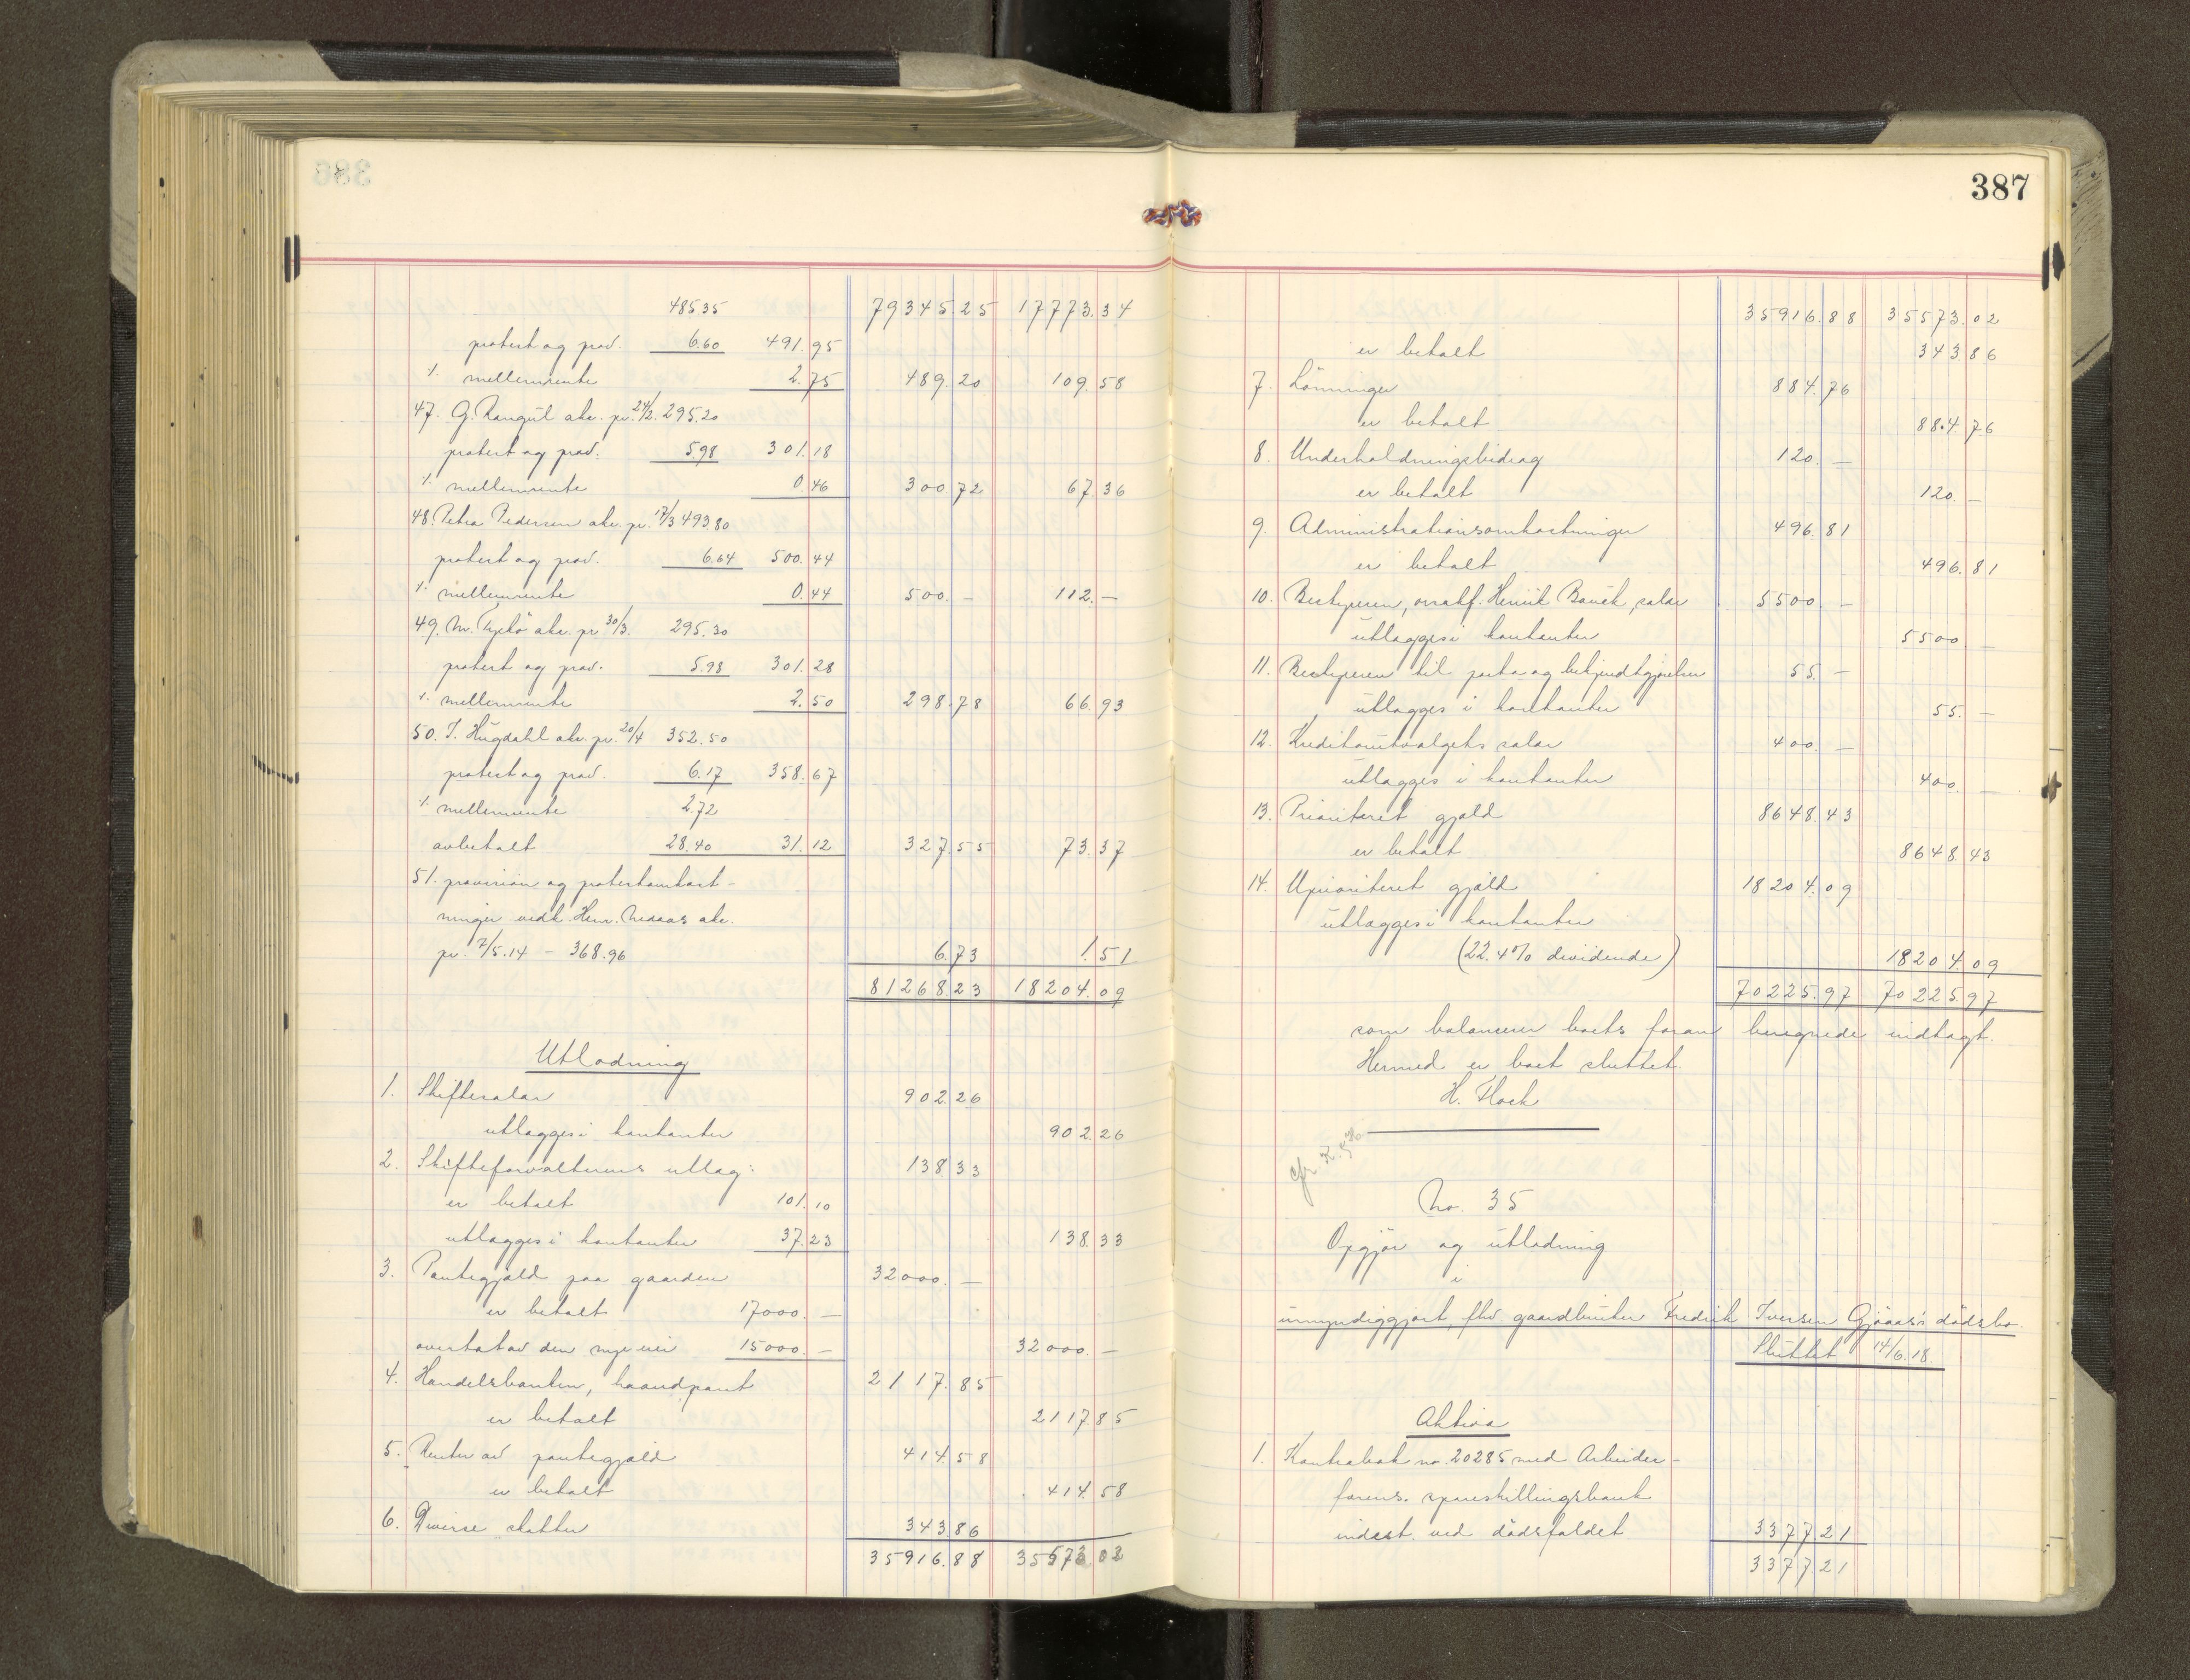 386
485.35 79345.25 17773.34
protest og prov. 6.60 491.95
÷ mellemrente 2.75 489.20 109.58
47. G. Rangul akc. pr. 24/2. 295.20
protest og prov. 5.98 301.18
÷ mellemrente 0.46 300.72 67.36
48. Petra Pedersen akc. pr. 17/3 493.80
protest og prov. 6.64 500.44
÷ mellemrente 0.44 500.- 112.-
49. M. akc. pr. 30/3. 295.30
protest og prov. 5.98 301.28
÷ mellemrente 2.50 298.78 66.93
50. I. Hugdahl akc. pr. 20/4 352.50
protest og prov. 6.17 358.67
÷ mellemrente 2.72
avbetalt 28.40 31.12 327.55 73.37
51. provision og protestomkost-
ninger vedk. Henr. akc.
pr. 7/5.14 - 368.96 6.73 1.51
81268.23 18204.09
Utlodning
1. Skiftesalar 902.26
utlægges i kontanter 902.26
2. Skifteforvalterens utlæg: 138.33
er betalt 101.10
utlægges i kontanter 37.23 138.33
3. Pantegjæld paa gaarden 32000.-
er betalt 17000.-
overtat av den nye eier 15000.- 32000.-
4. Handelsbanken, haandpant 2117.85
er betalt 2117.85
5. Renter av pantegjæld 414.58
er betalt 414.58
6. Diverse skatter 343.86
35916.88 35573.02
387
35916.88 35573.02
er betalt 343.86
7. Lönninger 884.76
er betalt 884.76
8. Underholdningsbidrag 120.-
er betalt 120.-
9. Administrationsomkostninger 496.81
er betalt 496.81
10. Bestyreren, orsakf. Henrik Bauck, salar 5500.-
utlægges i kontanter 5500.-
11. Bestyreren til porto og bekjendtgjørelser 55.-
utlægges i kontanter 55.-
12. Kreditorutvalgets salar 400.-
utlægges i kontanter 400.-
13. Prioritert gjæld 8648.43
er betalt 8648.43
14. Uprioritert gjæld 18204.09
utlægges i kontanter
(22.4% dividende) 18204.09
70225.97 70225.97
som balancerer boets foran beregnede indtægt.
Hermed er boet sluttet.
H. Flock
No. 35
Opgjör og utlodning
i
umyndiggjort, fhv. gaardbruker Fredrik Iversen Gjöaas's dödsbo.
Sluttet 14/6.18.
Aktiva
1. Kontrabok no. 20285 med Arbeider-
forens. spareskillingsbank
indest. ved dödsfaldet 3377.21
3377.21